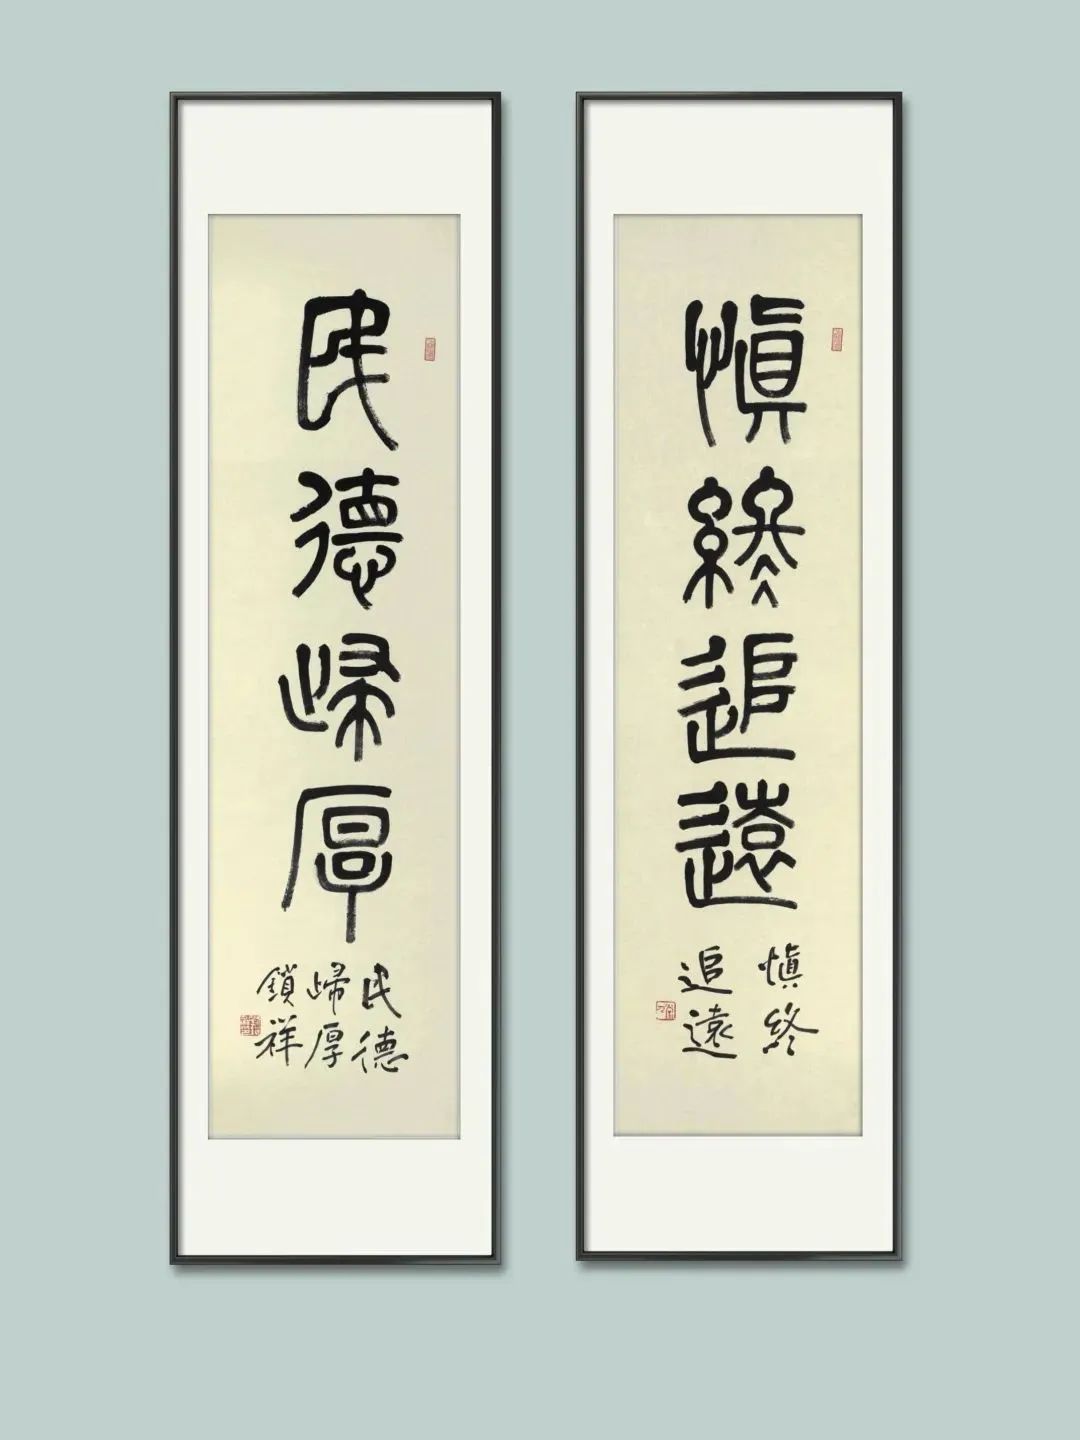 慎終追遠
慎終
追遠
民德歸厚
民德
歸厚
鎖祥